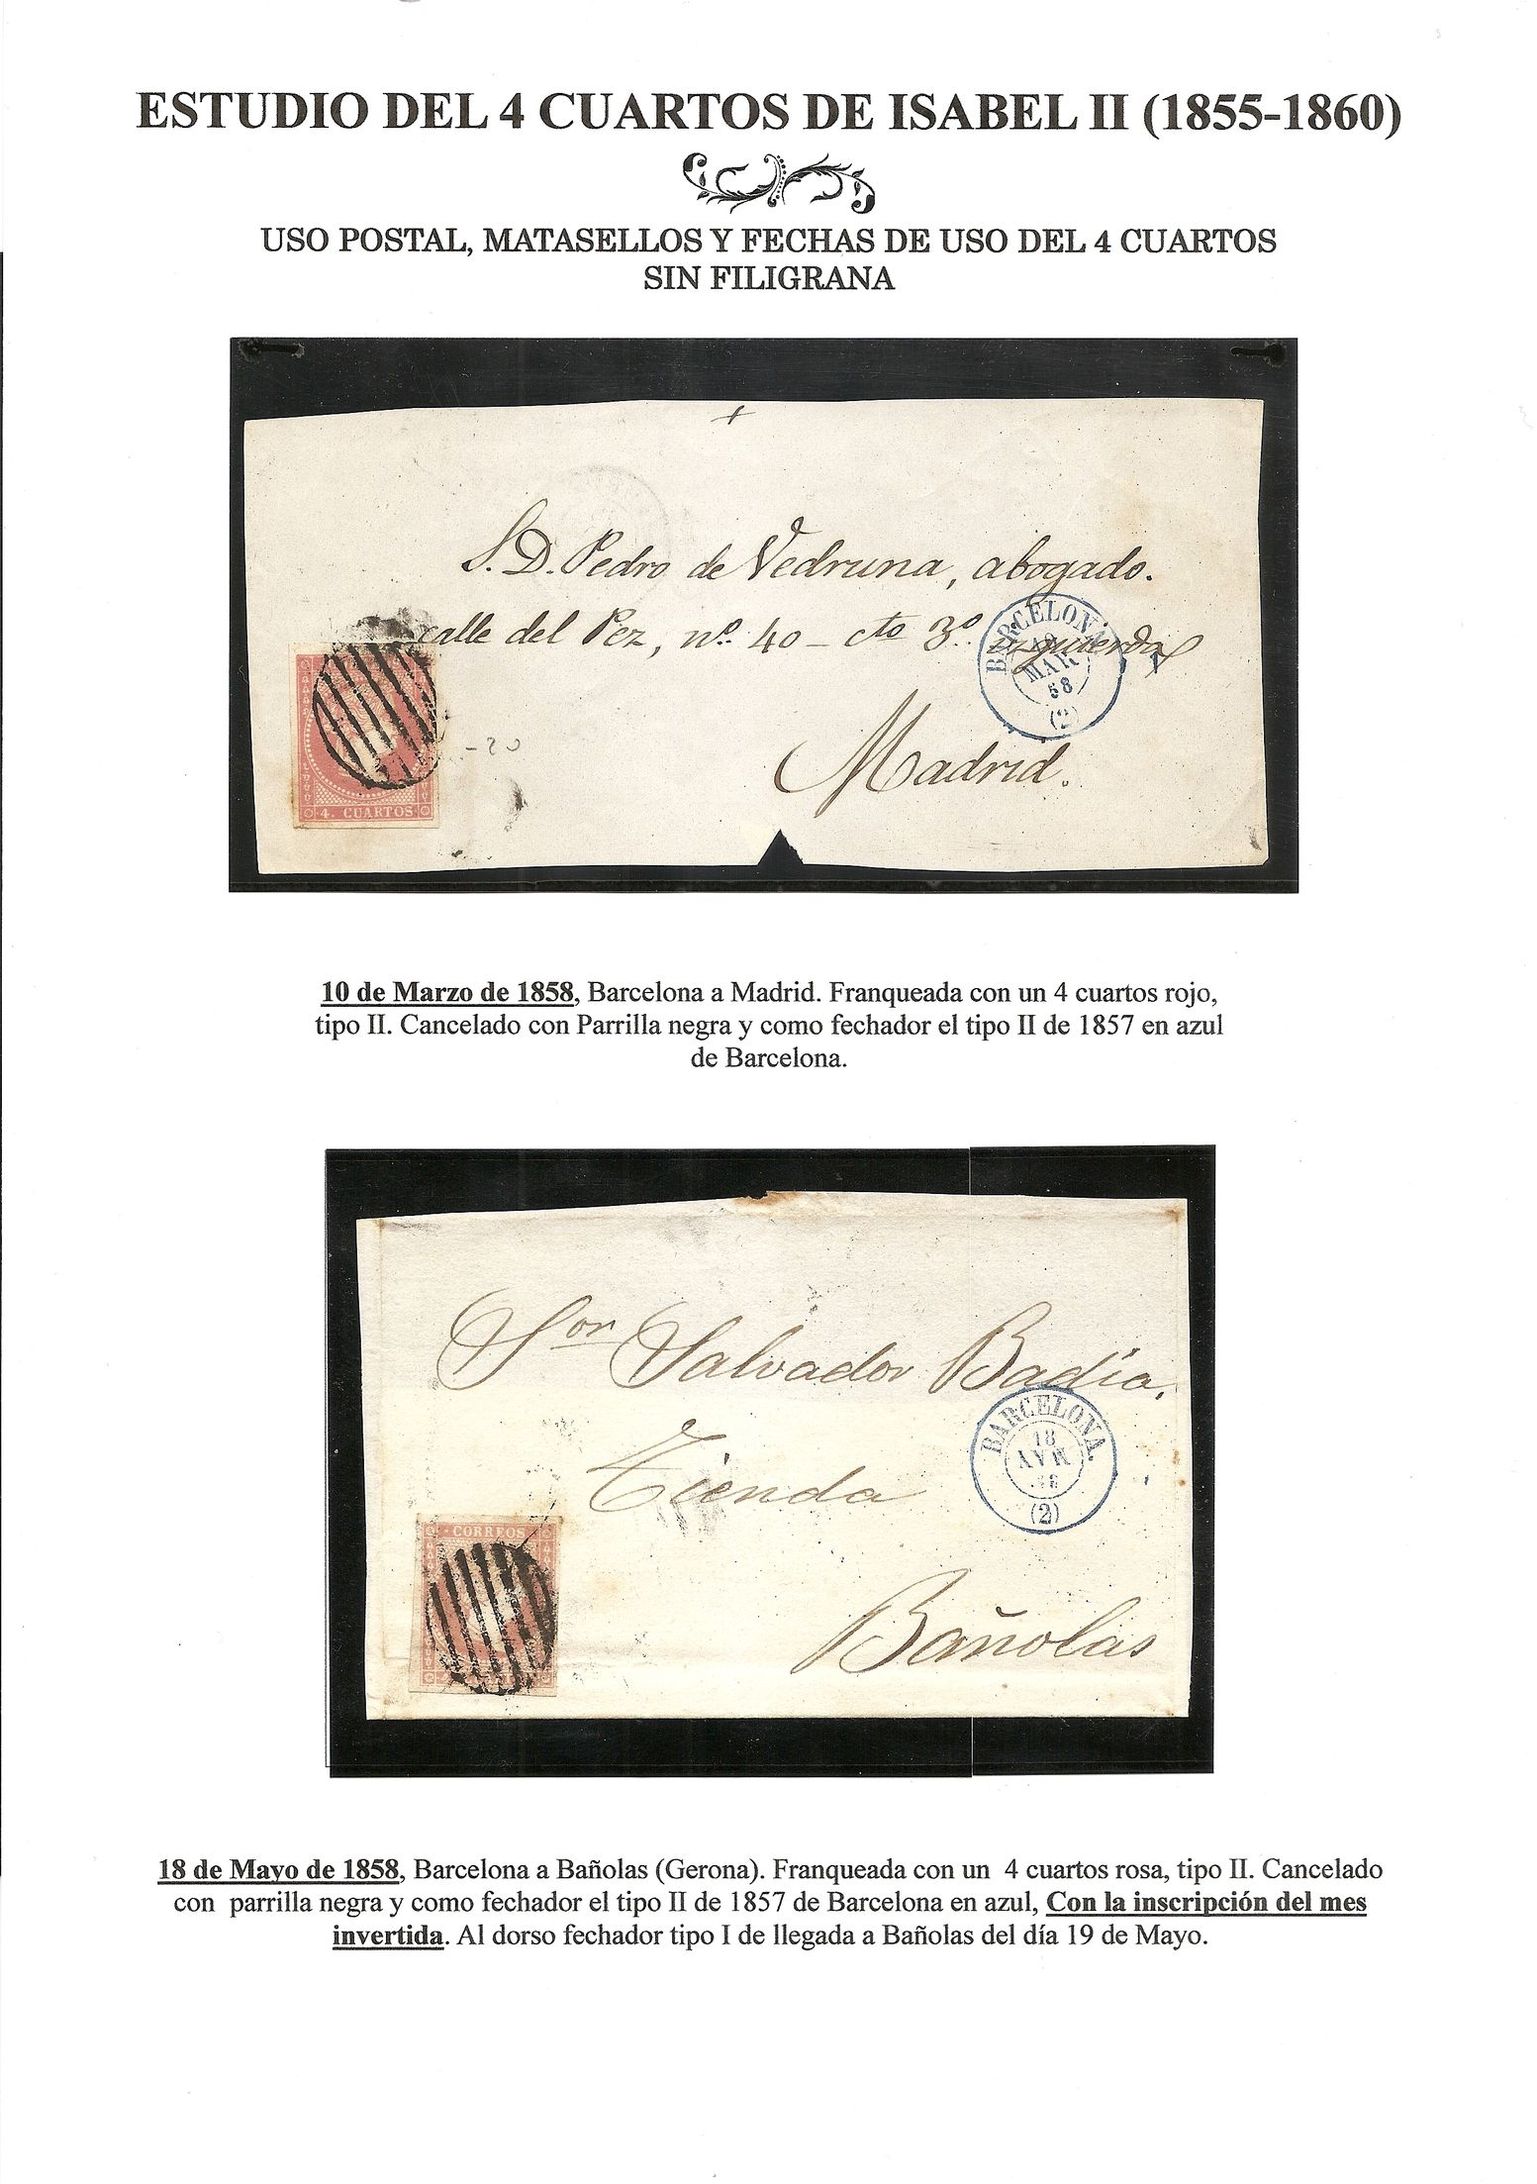 ESTUDIO DEL 4 CUARTOS DE ISABEL II (1855-1860)
USO POSTAL, MATASELLOS Y FECHAS DE USO DEL 4 CUARTOS
SIN FILIGRANA
S. D. Pedro de Vedruna, abogado.
calle del Pez, nº 40 - cto 3º izquierda
Madrid.
BARCELONA
10
MAR
58
(2)
4. CUARTOS
10 de Marzo de 1858, Barcelona a Madrid. Franqueada con un 4 cuartos rojo,
tipo II. Cancelado con Parrilla negra y como fechador el tipo II de 1857 en azul
de Barcelona.
Sor Salvador Badia.
Tienda
Bañolas
BARCELONA.
18
(2)
CORREOS
18 de Mayo de 1858, Barcelona a Bañolas (Gerona). Franqueada con un 4 cuartos rosa, tipo II. Cancelado
con parrilla negra y como fechador el tipo II de 1857 de Barcelona en azul, Con la inscripción del mes
invertida. Al dorso fechador tipo I de llegada a Bañolas del día 19 de Mayo.